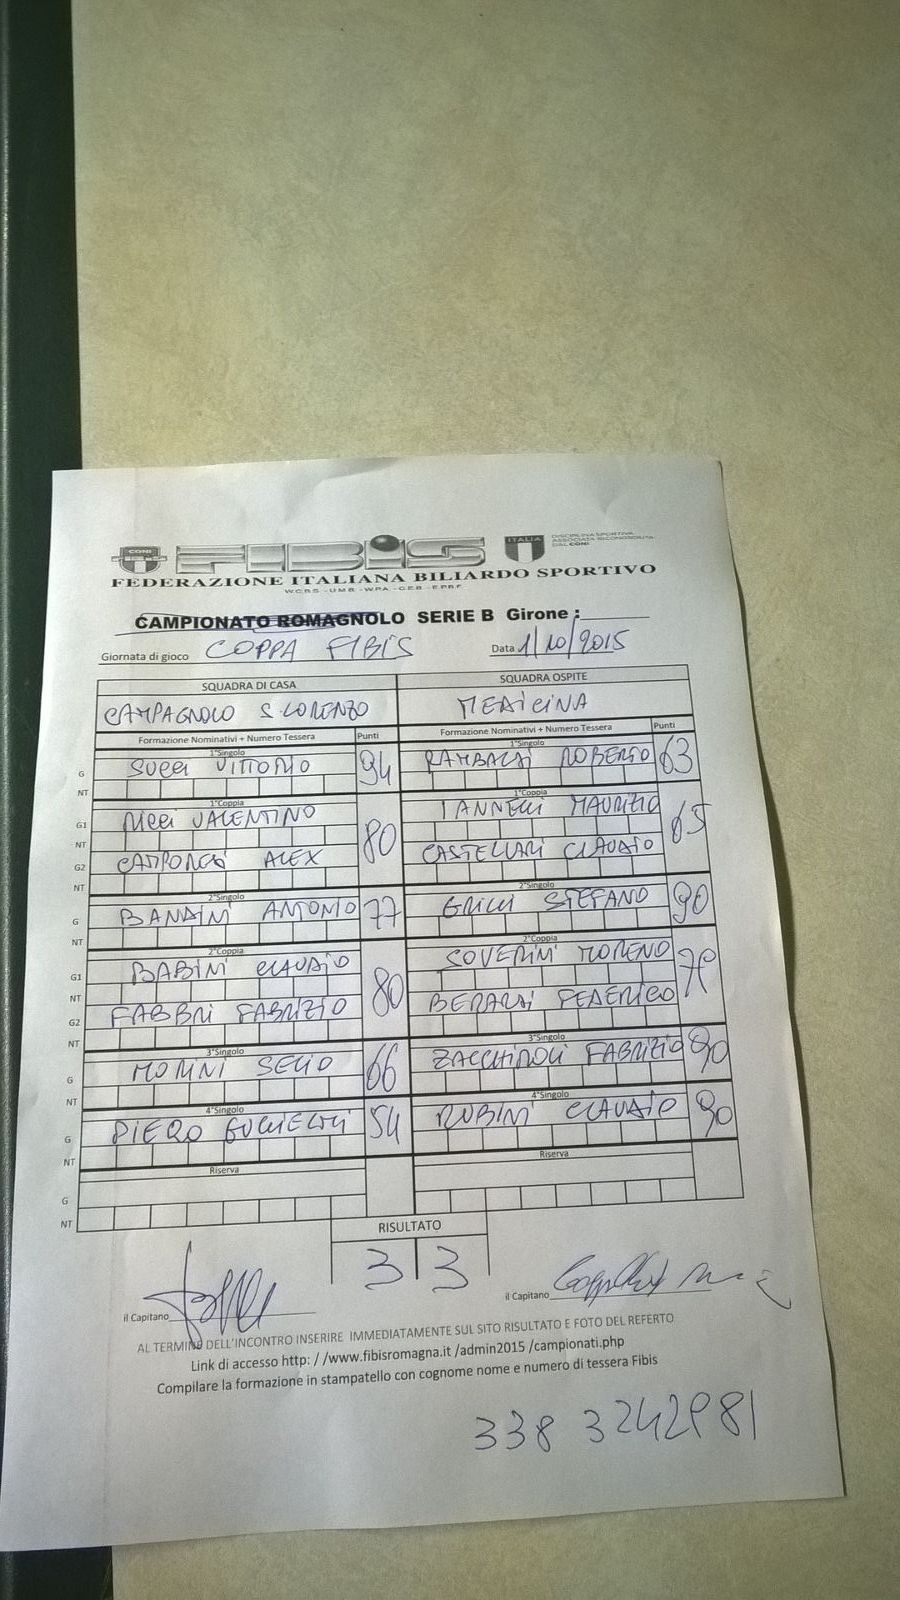 CONI
FIBIS
ITALIA
DISCIPLINA SPORTIVA
ASSOCIATA RICONOSCIUTA
DAL CONI
FEDERAZIONE ITALIANA BILIARDO SPORTIVO
WCBS - UMB - WPA - CEB - EPBF
CAMPIONATO ROMAGNOLO SERIE B Girone :
Giornata di gioco COPPA FIBIS Data 1/10/2015
SQUADRA DI CASA SQUADRA OSPITE
CAMPAGNOLO S. LORENZO MEDICINA
Formazione Nominativi + Numero Tessera Punti Formazione Nominativi + Numero Tessera Punti
1°Singolo 1°Singolo
G SUCCI VITTORIO 94 RAMBALDI ROBERTO 63
NT
1°Coppia 1°Coppia
G1 RICCI VALENTINO 80 IANNELLI MAURIZIO 65
NT
G2 CAMPORESI ALEX CASTELLARI CLAUDIO
NT
2°Singolo 2°Singolo
G BANDINI ANTONIO 77 GRILLI STEFANO 90
NT
2°Coppia 2°Coppia
G1 BABINI CLAUDIO 80 SOVERINI MORENO
NT
G2 FABBRI FABRIZIO BERARDI FEDERICO
NT
3°Singolo 3°Singolo
G MORINI SELIO 66 ZACCHIROLI FABRIZIO 90
NT
4°Singolo 4°Singolo
G PIERO GUGLIELMI 54 RUBINI CLAUDIO 90
NT
Riserva Riserva
G
NT
RISULTATO
3 3
il Capitano il Capitano
AL TERMINE DELL'INCONTRO INSERIRE IMMEDIATAMENTE SUL SITO RISULTATO E FOTO DEL REFERTO
Link di accesso http: / /www.fibisromagna.it /admin2015 /campionati.php
Compilare la formazione in stampatello con cognome nome e numero di tessera Fibis
338 3242981